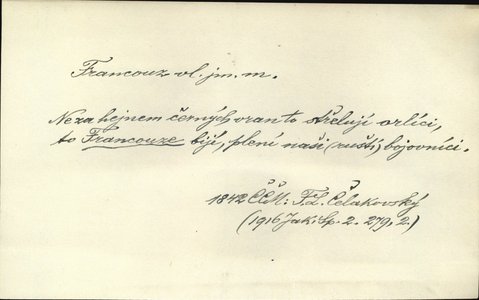 Francouz vl. jm. m.
Ne za hejnem černých vran to střelují orlíci,
to Francouze bijí, plení naši (ruští) bojovníci.
1842 ČČM: F.L. Čelakovský
(1916 Jak. Sp. 2. 279, 2.)